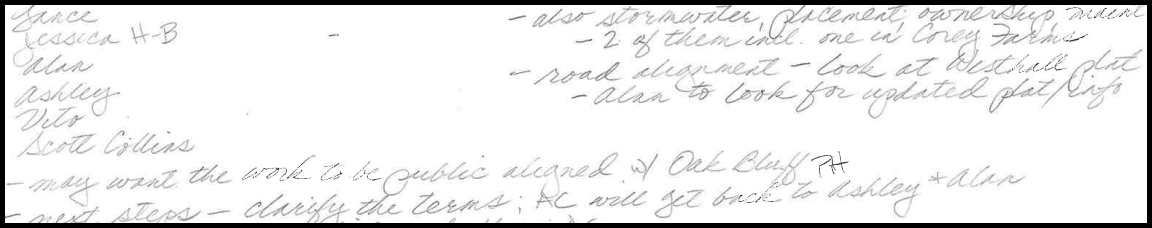 Lance
- also stormwater, placement, ownership, maint
Jessica H-B
-
- 2 of them incl. one in Corey Farms
Alan
- road alignment - look at Westhall plat
Ashley
- Alan to look for updated plat/info
Vito
Scott Collins
- may want the work to be public aligned w/ Oak Bluff PH
- next steps - clarify the terms; AC will get back to Ashley + Alan